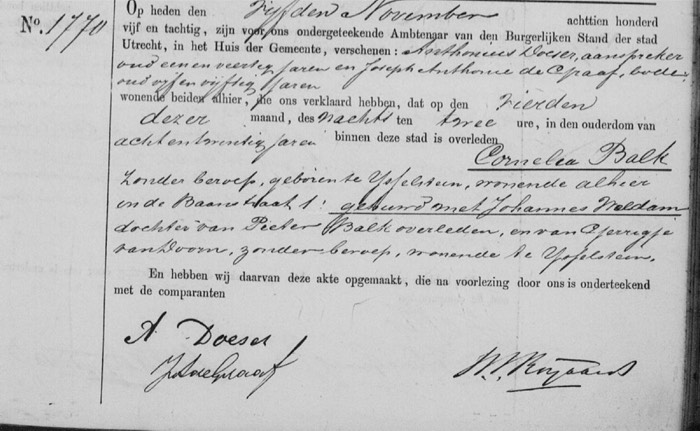 No. 1770
Op heden den Vijfden November achttien honderd
vijf en tachtig, zijn voor ons ondergeteekende Ambtenaar van den Burgerlijken Stand der stad
Utrecht, in het Huis der Gemeente, verschenen: Anthonius Doeser, aanspreker
oud een en veertig jaren en Joseph Anthonie de Graaf, bode,
oud vijf en vijftig jaren
wonende beiden alhier, die ons verklaard hebben, dat op den Vierden
dezer maand, des Nachts ten twee ure, in den ouderdom van
acht en twintig jaren binnen deze stad is overleden
Cornelia Balk
zonder beroep, geboren te IJsselstein, wonende alhier
in de Baanstraat 1: gehuwd met Johannes Weldam
dochter van Pieter Balk overleden, en van Gerrigje
van Doorn, zonder beroep, wonende te IJsselstein.
En hebben wij daarvan deze akte opgemaakt, die na voorlezing door ons is onderteekend
met de comparanten
A. Doeser
J A de Graaf
Royaards